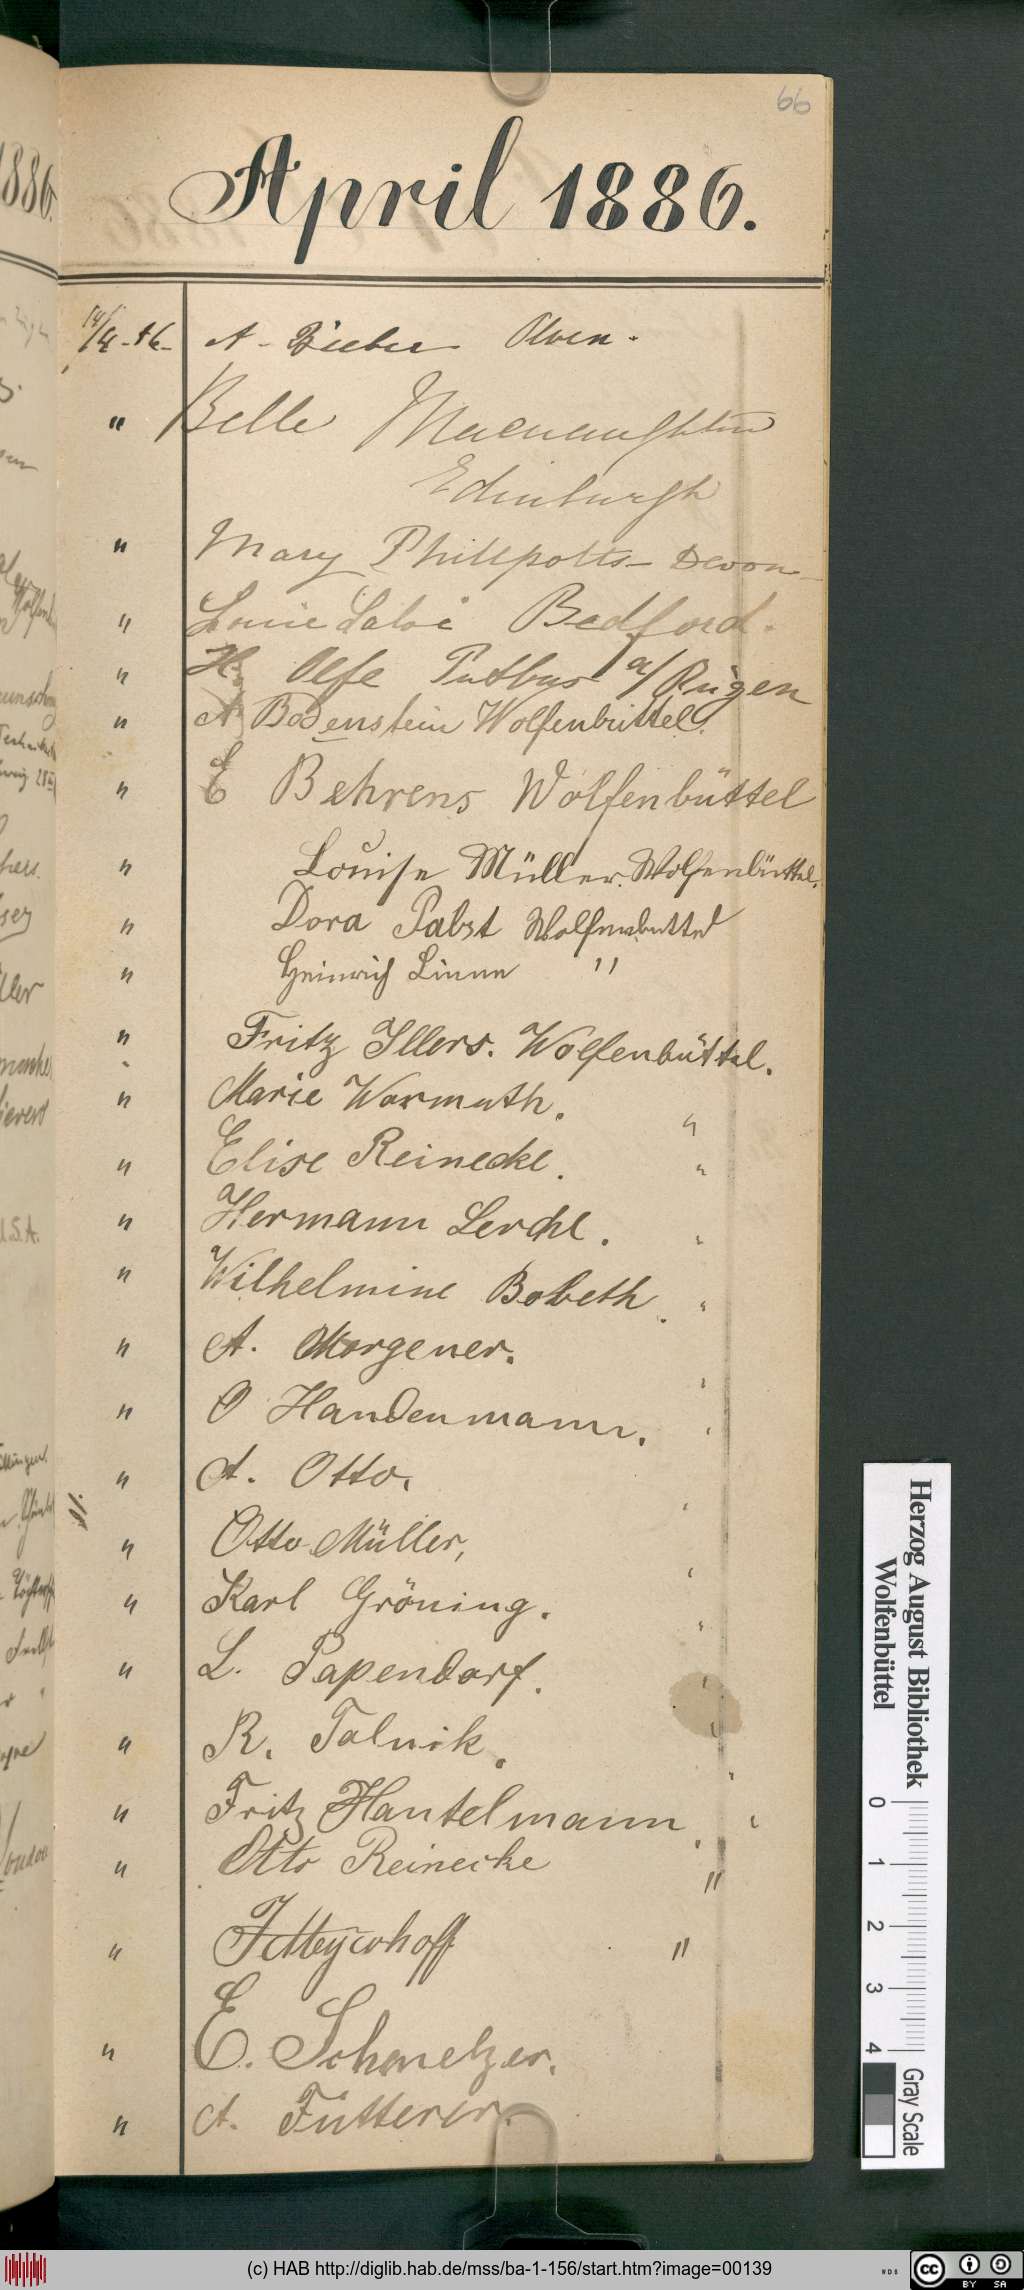 66
April 1886.
14/4. 86. A. Bieber
" Belle Macnaughton
Edinburgh
" Mary Phillpotts - Devon -
" Louie Bedford.
" H. Olfe Putbus a/Rügen
" A Bodenstein Wolfenbüttel.
" E Behrens Wolfenbüttel
" Louise Müller. Wolfenbüttel.
" Dora Pabst Wolfenbüttel
" Heinrich Linne "
" Fritz Illers. Wolfenbüttel.
" Marie Warmuth. "
" Elise Reinecke. "
" Hermann Lerche. "
" Wilhelmine Bobeth. "
" A. Morgener. "
" O Handenmann. "
" A. Otto. "
" Otto Müller, "
" Karl Gröning. "
" L. Papendorf. "
" R. "
" Fritz Hantelmann. "
" Otto Reinecke "
" Meyerhoff "
" E. Schmelzer.
" A. Fütterer.
1886.
U.S.A.
London
Herzog August Bibliothek
Wolfenbüttel
0 1 2 3 4
Gray Scale
(c) HAB http://diglib.hab.de/mss/ba-1-156/start.htm?image=00139
WDB
cc BY SA